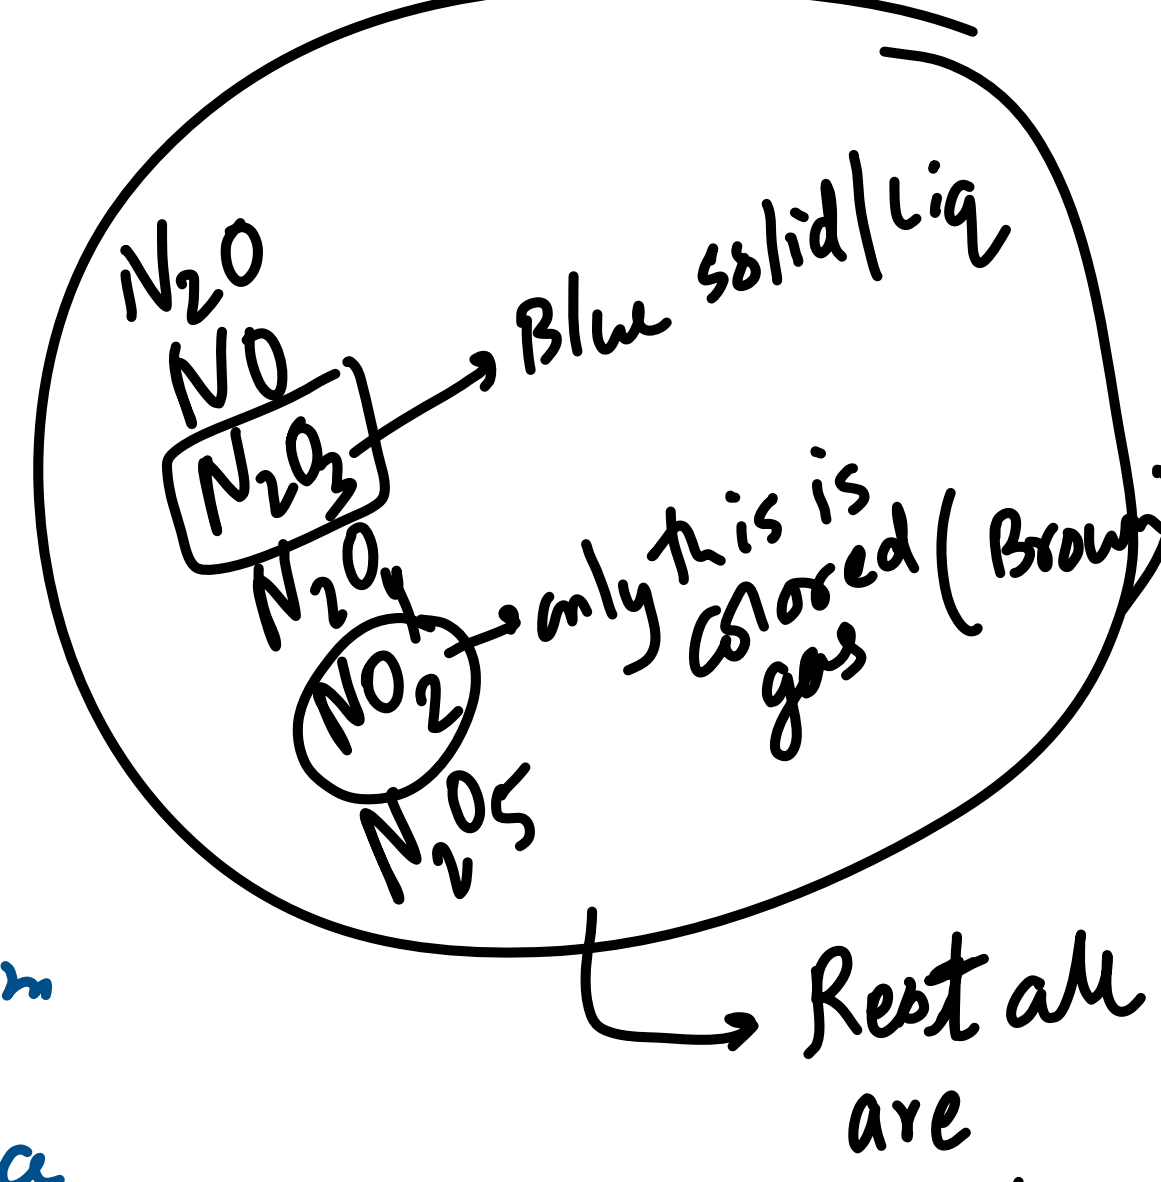 N2O
NO
N2O3 → Blue solid/Liq
N2O4
NO2 → only this is colored (Brown
gas
N2O5
Rest all
are